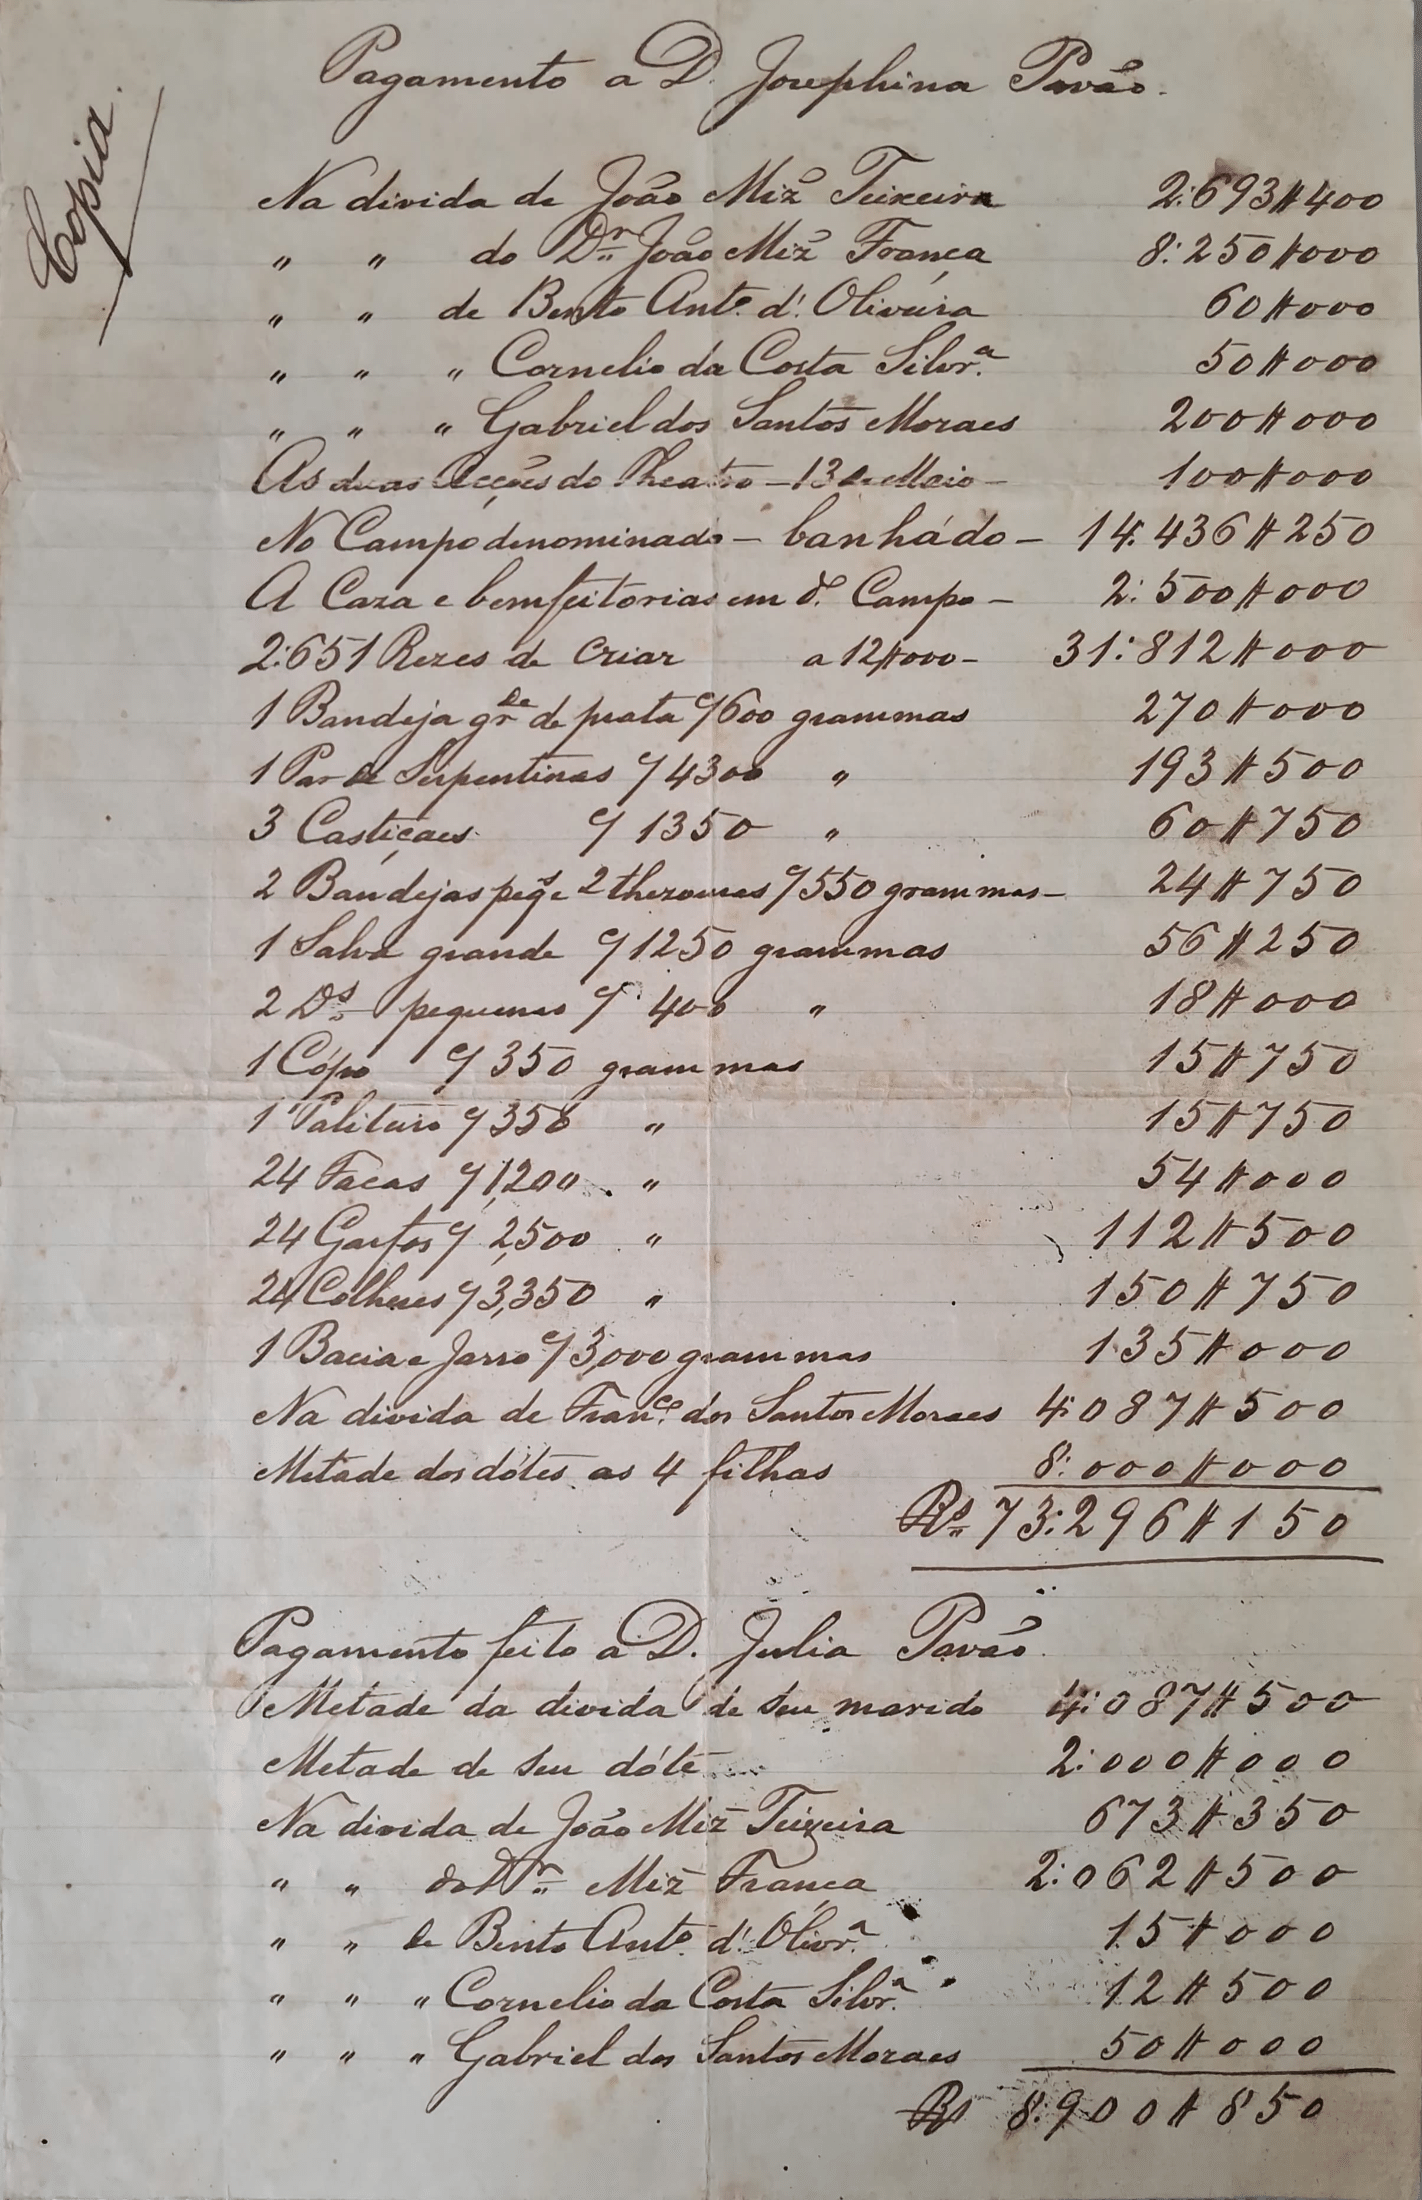 Copia.
Pagamento a D. Josephina Pavão.
Na divida de João Miz Teixeira 2:693$400
" " do Dr João Miz França 8:250$000
" " de Bento Anto. d'Oliveira 60$000
" " " Cornelio da Costa Silvra. 50$000
" " " Gabriel dos Santos Moraes 200$000
As duas Acções do Theatro - 13 de Maio - 100$000
No Campo denominado - banhádo - 14:436$250
A Caza e bemfeitorias em do. Campo - 2:500$000
2:651 Rezes de Criar a 12$000 - 31:812$000
1 Bandeja gr.de de prata c/ 600 grammas 270$000
1 Par de Serpentinas c/ 4300 " 193$500
3 Castiçaes c/ 1350 " 60$750
2 Bandejas peqs. e 2 thezouras c/ 550 grammas - 24$750
1 Salva grande c/ 1250 grammas 56$250
2 Ds. pequenas c/ 400 " 18$000
1 Cópo c/ 350 grammas 15$750
1 Paliteiro c/ 350 " 15$750
24 Facas c/ 1,200 " 54$000
24 Garfos c/ 2,500 " 112$500
24 Colheres c/ 3,350 " 150$750
1 Bacia e Jarro c/ 3,000 grammas 135$000
Na divida de Franco. dos Santos Moraes 4:087$500
Metade dos dótes as 4 filhas 8:000$000
Rs 73:296$150
Pagamento feito a D. Julia Pavão.
Metade da divida de seu marido 4:087$500
Metade de seu dóte 2:000$000
Na divida de João Miz Teixeira 673$350
" " do Dr Miz França 2:062$500
" " de Bento Anto. d'Olivra. 15$000
" " " Cornelio da Costa Silvra. 12$500
" " " Gabriel dos Santos Moraes 50$000
Rs 8:900$850